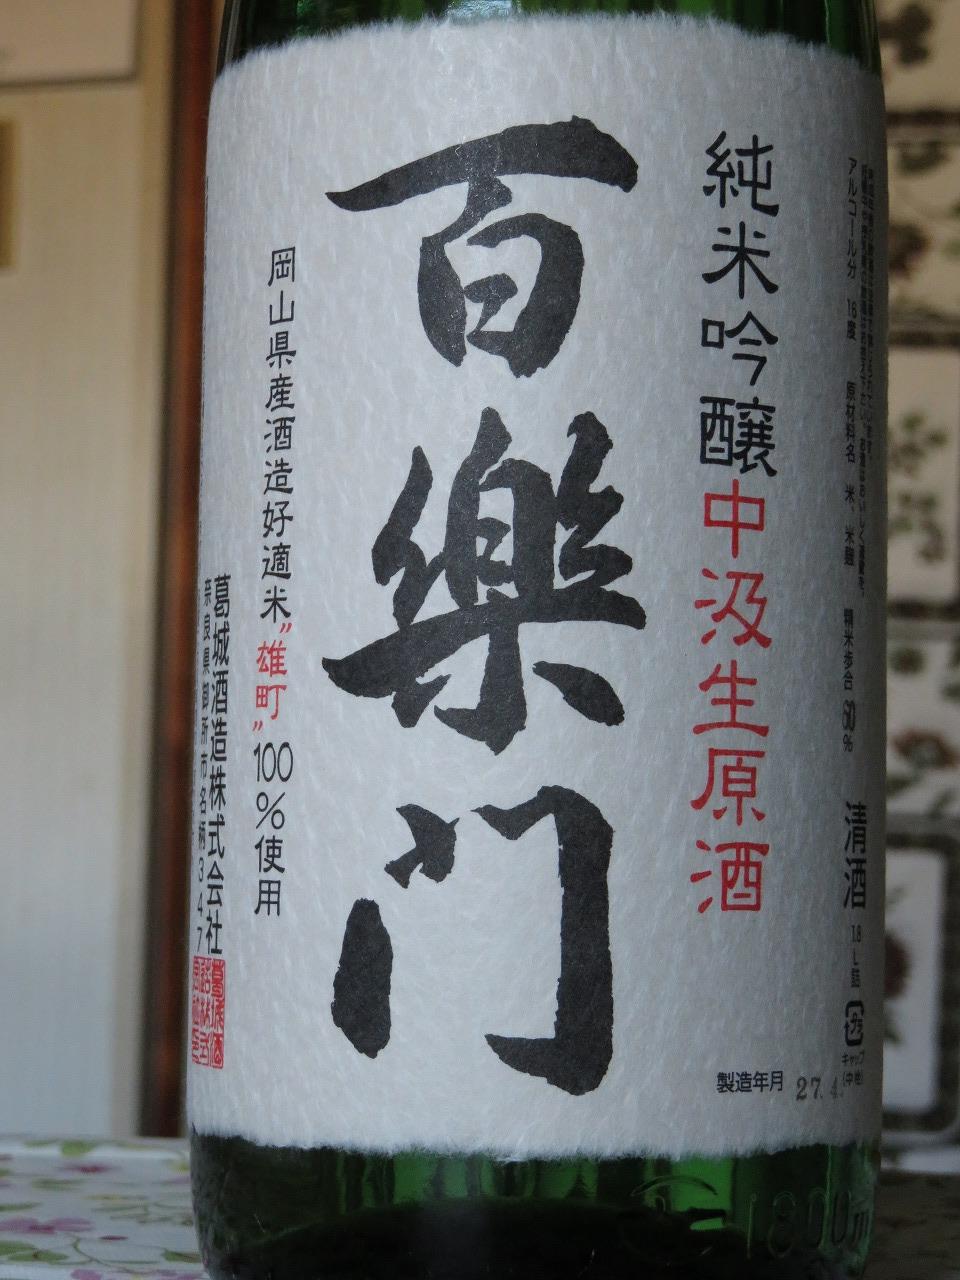 アルコール分 16度 原材料名 米、米麹 精米歩合 60% 清酒 1.8L詰
キャップ
(中栓)
純米吟醸中汲生原酒
製造年月 27.4.
百樂门
岡山県産酒造好適米"雄町"100%使用
葛城酒造株式会社
奈良県御所市名柄347
1800ml